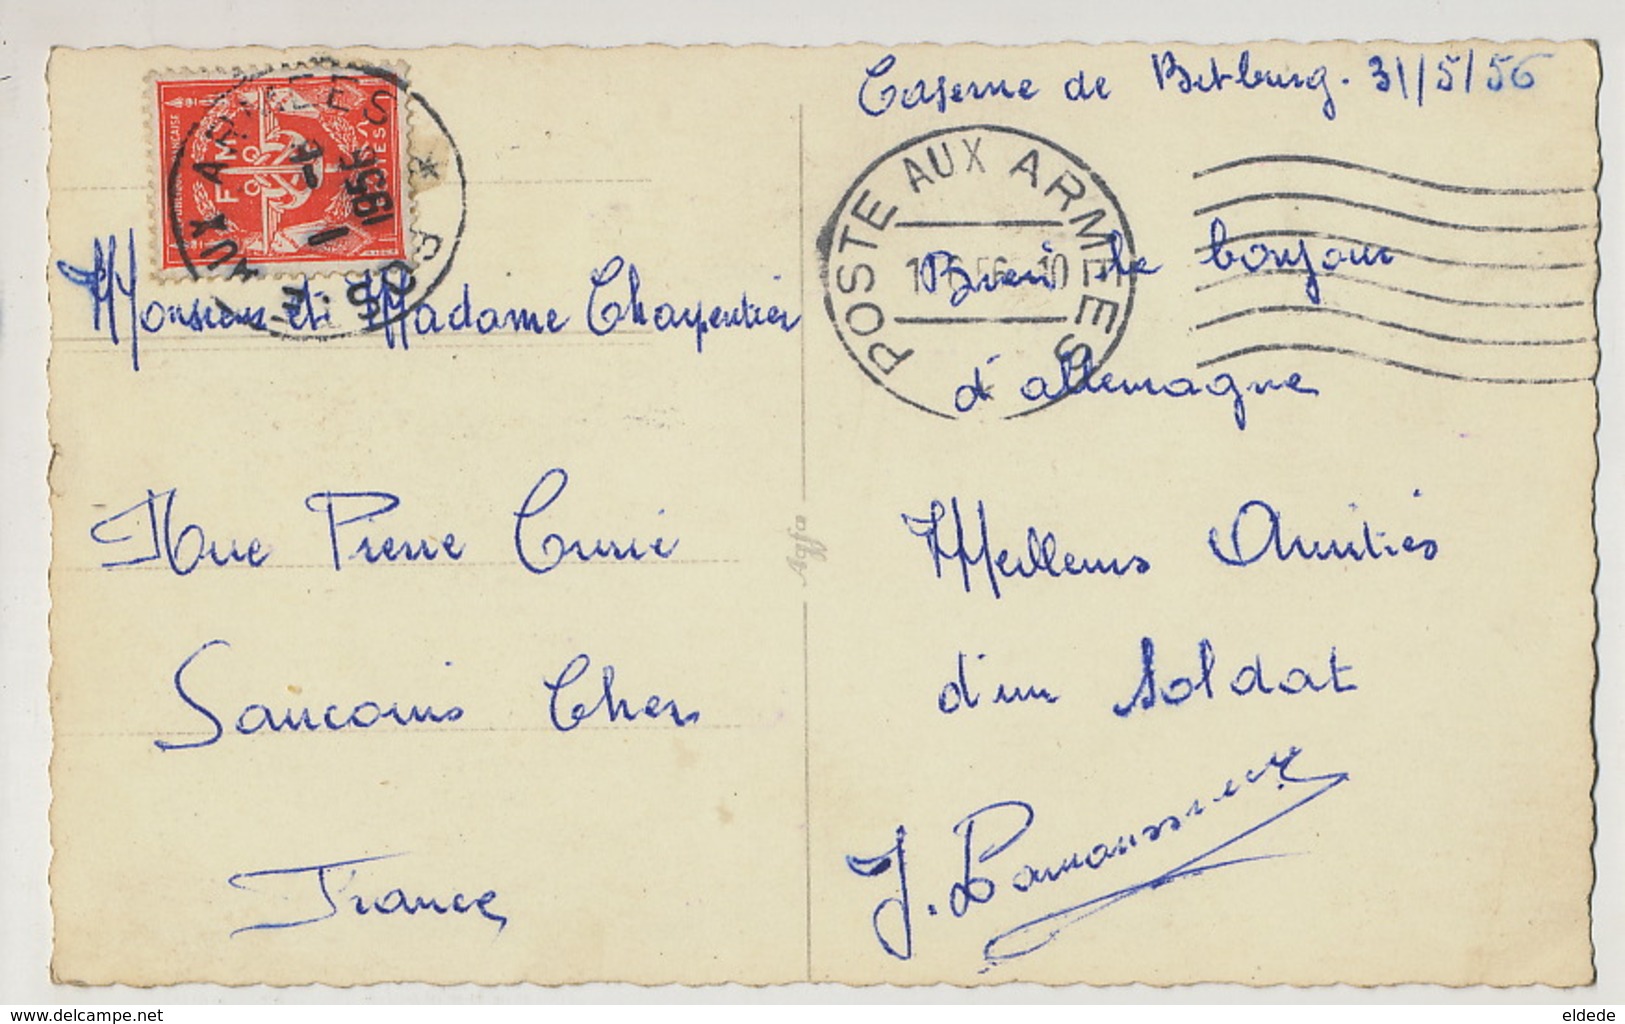 Caserne de Bitburg. 31/5/56
POSTE AUX ARMEES
FM
POSTES
AUX ARMEES
1956
Monsieur et Madame Charpentier
Bien le bonjour
d'allemagne
Rue Pierre Curie
Meilleurs Amitiés
Sancoins Cher
d'un Soldat
France
J.
www.delcampe.net
eldede